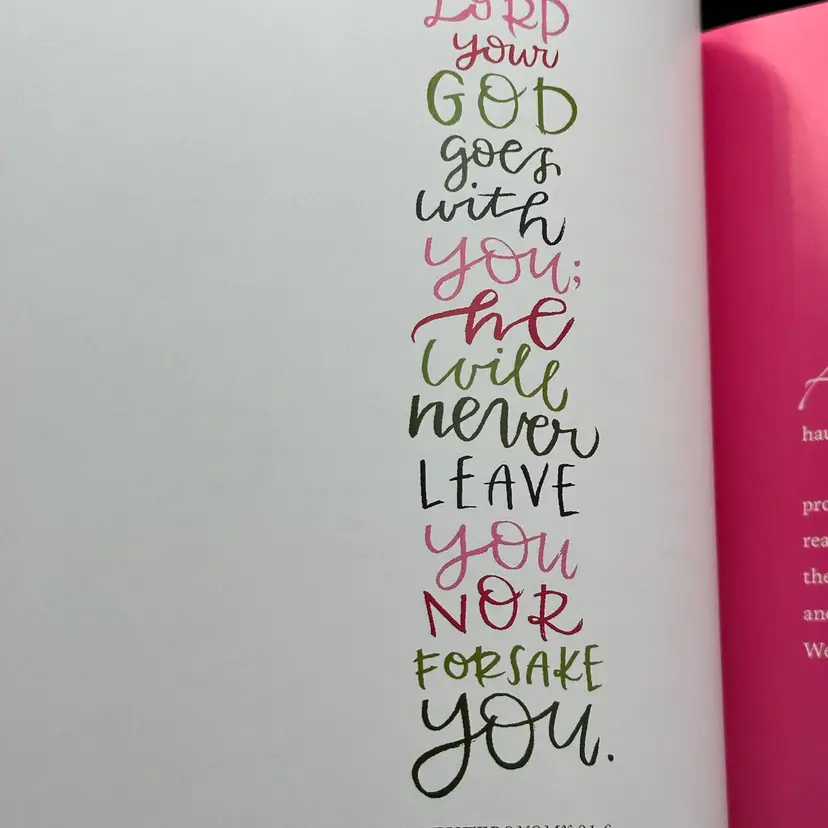 LORD
your
GOD
goes
with
you;
he
will
never
LEAVE
you
NOR
FORSAKE
you.
hau
pro
rea
the
and
We